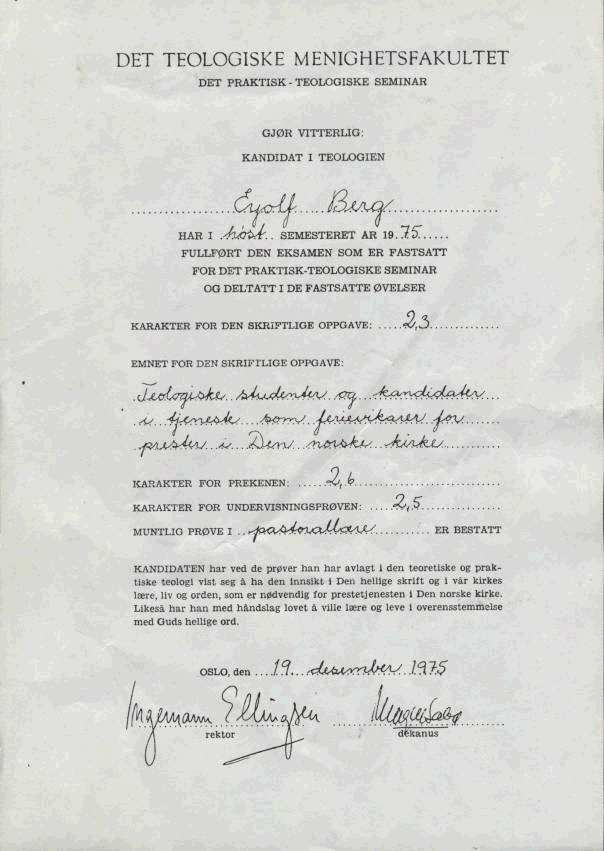 DET TEOLOGISKE MENIGHETSFAKULTET
DET PRAKTISK - TEOLOGISKE SEMINAR
GJØR VITTERLIG:
KANDIDAT I TEOLOGIEN
Eyolf Berg
HAR I høst SEMESTERET ÅR 1975
FULLFØRT DEN EKSAMEN SOM ER FASTSATT
FOR DET PRAKTISK-TEOLOGISKE SEMINAR
OG DELTATT I DE FASTSATTE ØVELSER
KARAKTER FOR DEN SKRIFTLIGE OPPGAVE: 2,3
EMNET FOR DEN SKRIFTLIGE OPPGAVE:
Teologiske studenter og kandidater
i tjeneste som ferievikarer for
prester i Den norske kirke
KARAKTER FOR PREKENEN: 2,6
KARAKTER FOR UNDERVISNINGSPRØVEN: 2,5
MUNTLIG PRØVE I pastorallære ER BESTATT
KANDIDATEN har ved de prøver han har avlagt i den teoretiske og prak-
tiske teologi vist seg å ha den innsikt i Den hellige skrift og i vår kirkes
lære, liv og orden, som er nødvendig for prestetjenesten i Den norske kirke.
Likeså har han med håndslag lovet å ville lære og leve i overensstemmelse
med Guds hellige ord.
OSLO, den 19. desember 1975
Ingemann Ellingsen
rektor dekanus